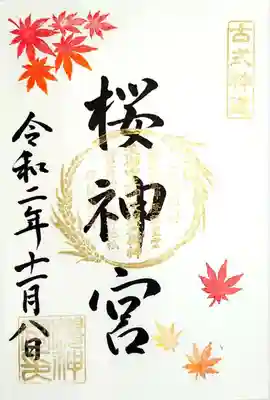 古式神道
桜神宮
令和二年十一月八日